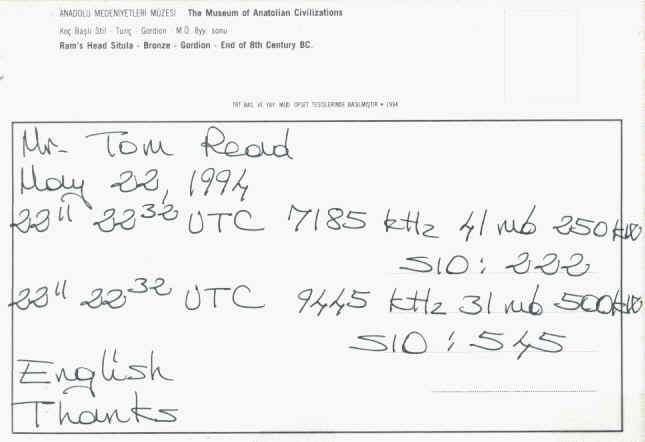 ANADOLU MEDENİYETLERİ MÜZESİ The Museum of Anatolian Civilizations
Koç Başlı Stil - Tunç - Gordion - M.Ö. 8yy. sonu
Ram's Head Situla - Bronze - Gordion - End of 8th Century BC.
TRT BAS. VE YAY. MÜD. OFSET TESİSLERİNDE BASILMIŞTIR • 1994
Mr. Tom Read
May 22, 1994
22¹¹ 22³² UTC 7185 kHz 41 mb 250kW
SIO: 222
22¹¹ 22³² UTC 9445 kHz 31 mb 500kW
SIO: 545
English
Thanks